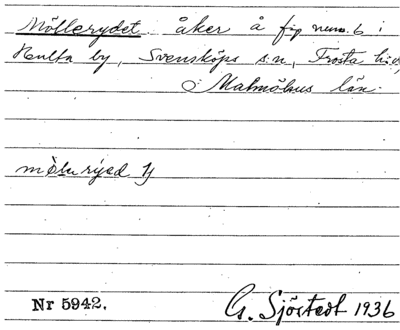 Möllerydet. åker å fig num. 6 i
Hulta by, Svensköps s:n, Frosta h:d,
o Malmöhus län.
Nr 5942.
G. Sjöstedt 1936